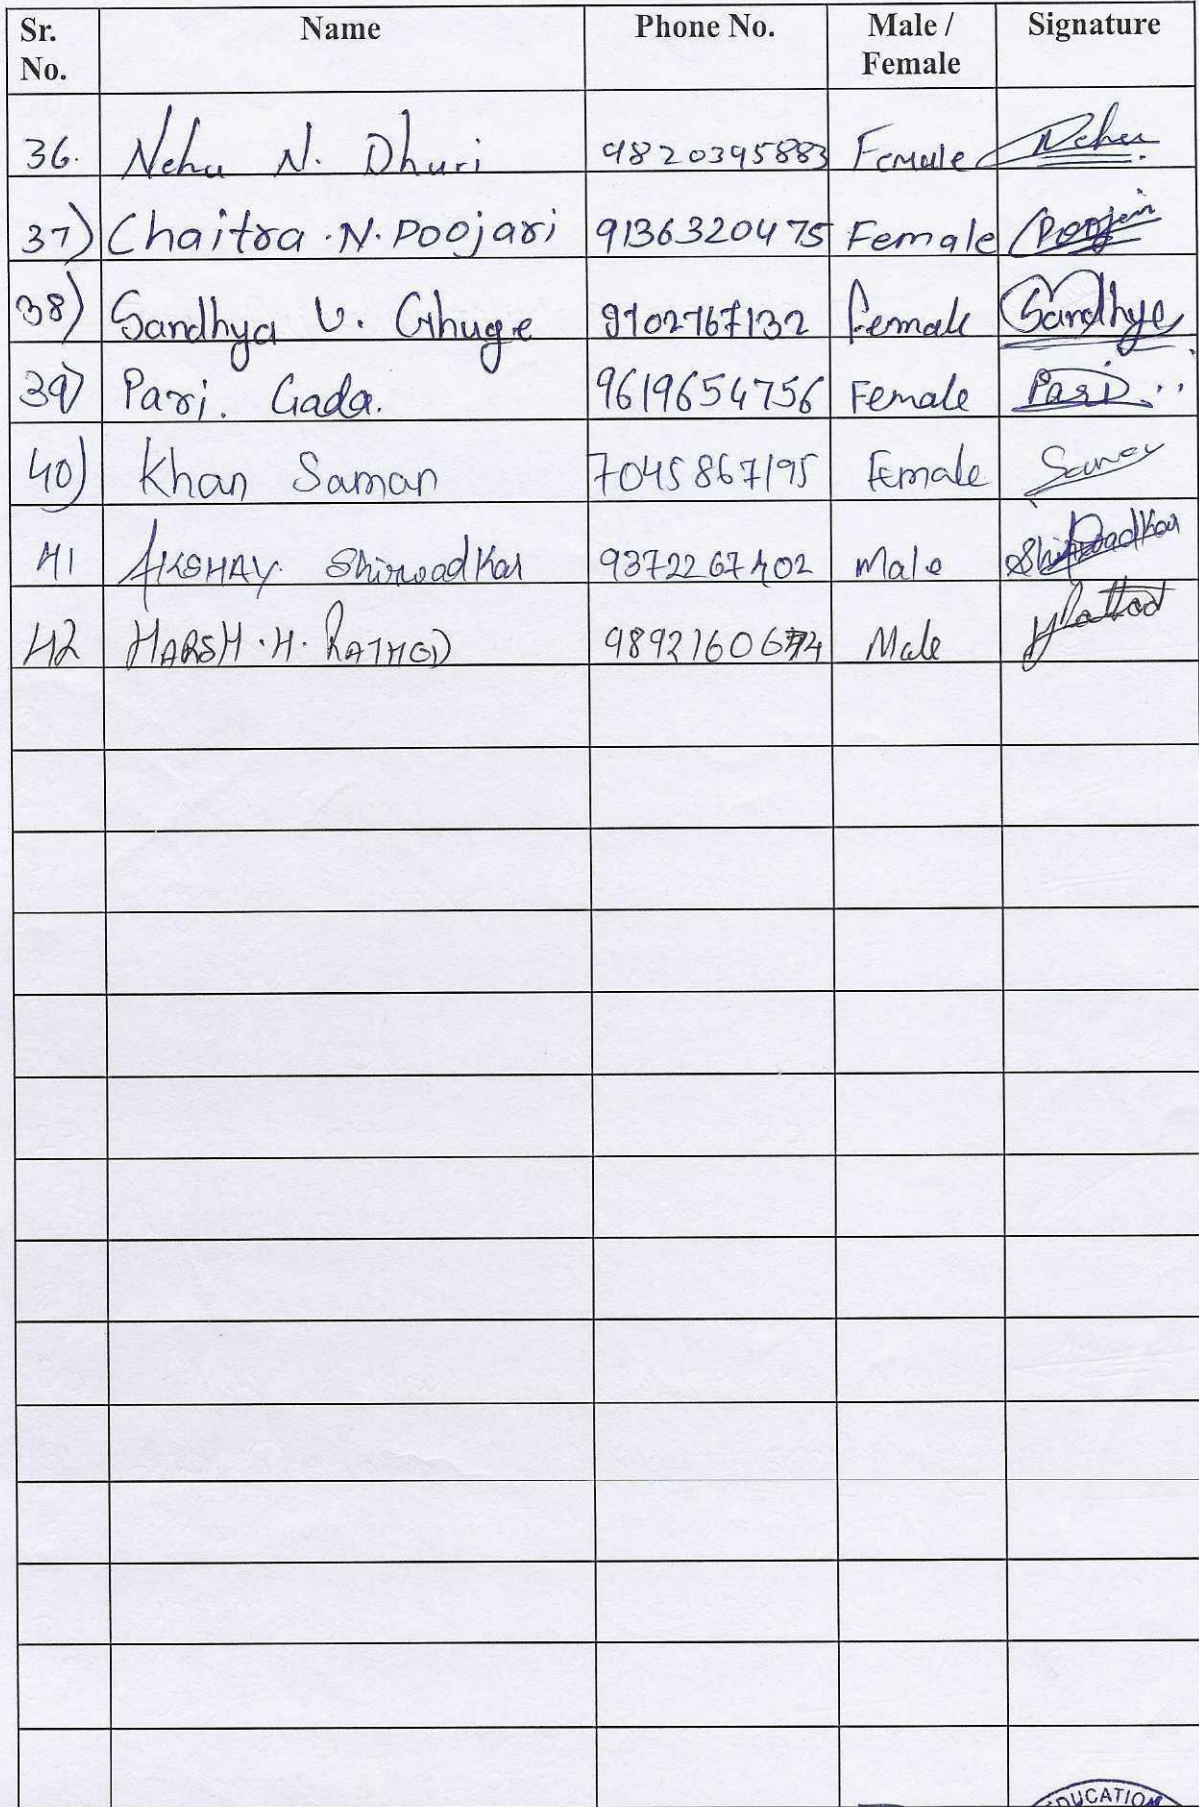 Sr. No. Name Phone No. Male / Female Signature
36. Neha N. Dhuri 9820395883 Female Neha
37) Chaitra .N. Poojari 9136320475 Female Poojari
38) Sandhya V. Ghuge 9702767132 Female Sandhya
39) Pari. Gada. 9619654756 Female Pari
40) Khan Saman 7045867195 Female
41 AKSHAY. Shirwadkar 9372267402 Male Shirwadkar
42 HARSH .H. RATHOD 9892160674 Male HRathod
EDUCATION